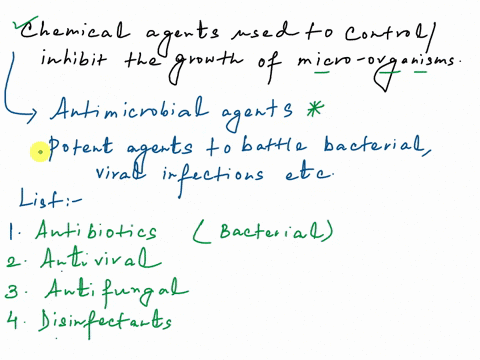 Chemical agents used to control/
inhibit the growth of micro-organisms.
Antimicrobial agents *
Potent agents to battle bacterial,
viral infections etc.
List:-
1. Antibiotics (Bacterial)
2. Antiviral
3. Antifungal
4. Disinfectants